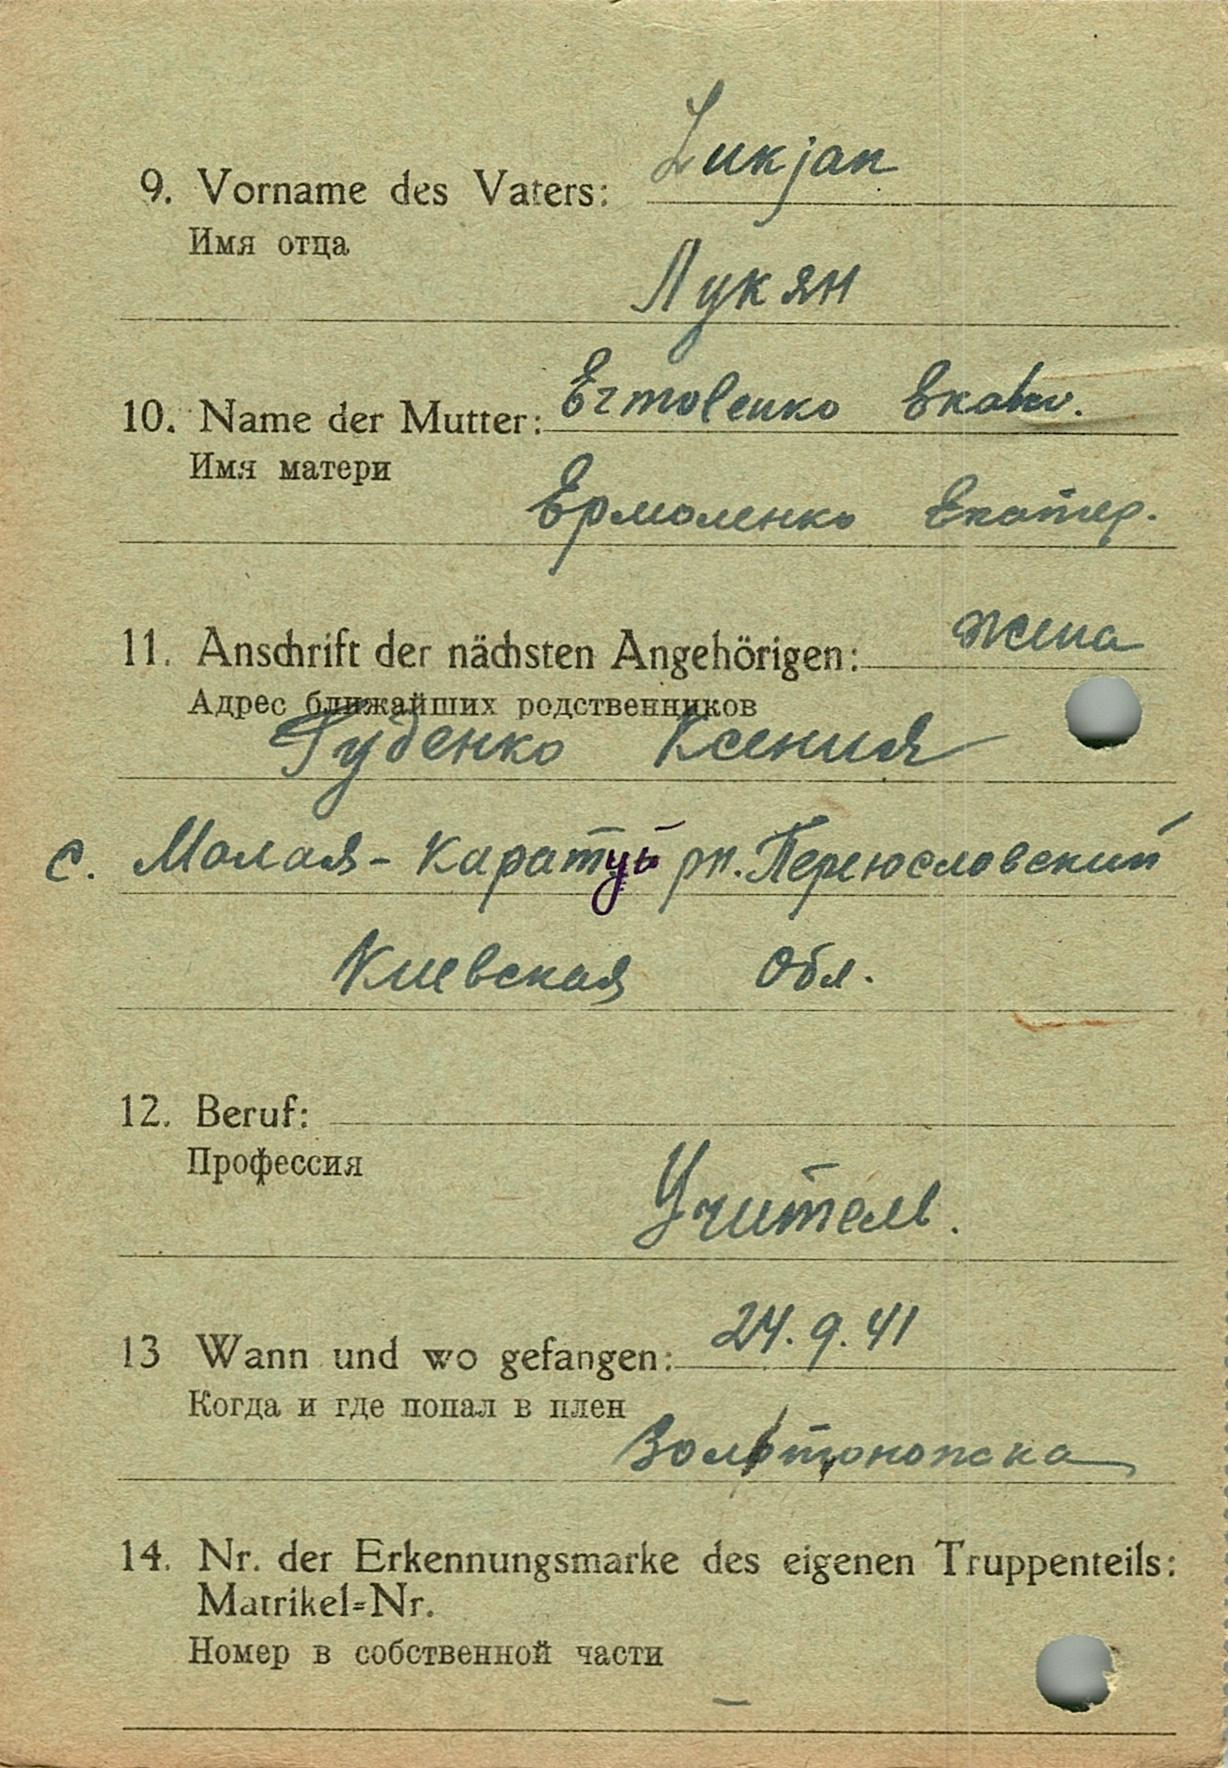 Lukjan
9. Vorname des Vaters:
Имя отца
Лукян
10. Name der Mutter: Ermolenko Ekat.
Имя матери
Ермоленко Екатер.
11. Anschrift der nächsten Angehörigen: жена
Адрес ближайших родственников
Губенко Ксения
с. Малая-Каратуй рн. Переюсловский
Киевская Обл.
12. Beruf:
Профессия
Учитель.
13 Wann und wo gefangen: 24.9.41
Когда и где попал в плен
14. Nr. der Erkennungsmarke des eigenen Truppenteils:
Matrikel=Nr.
Номер в собственной части
—